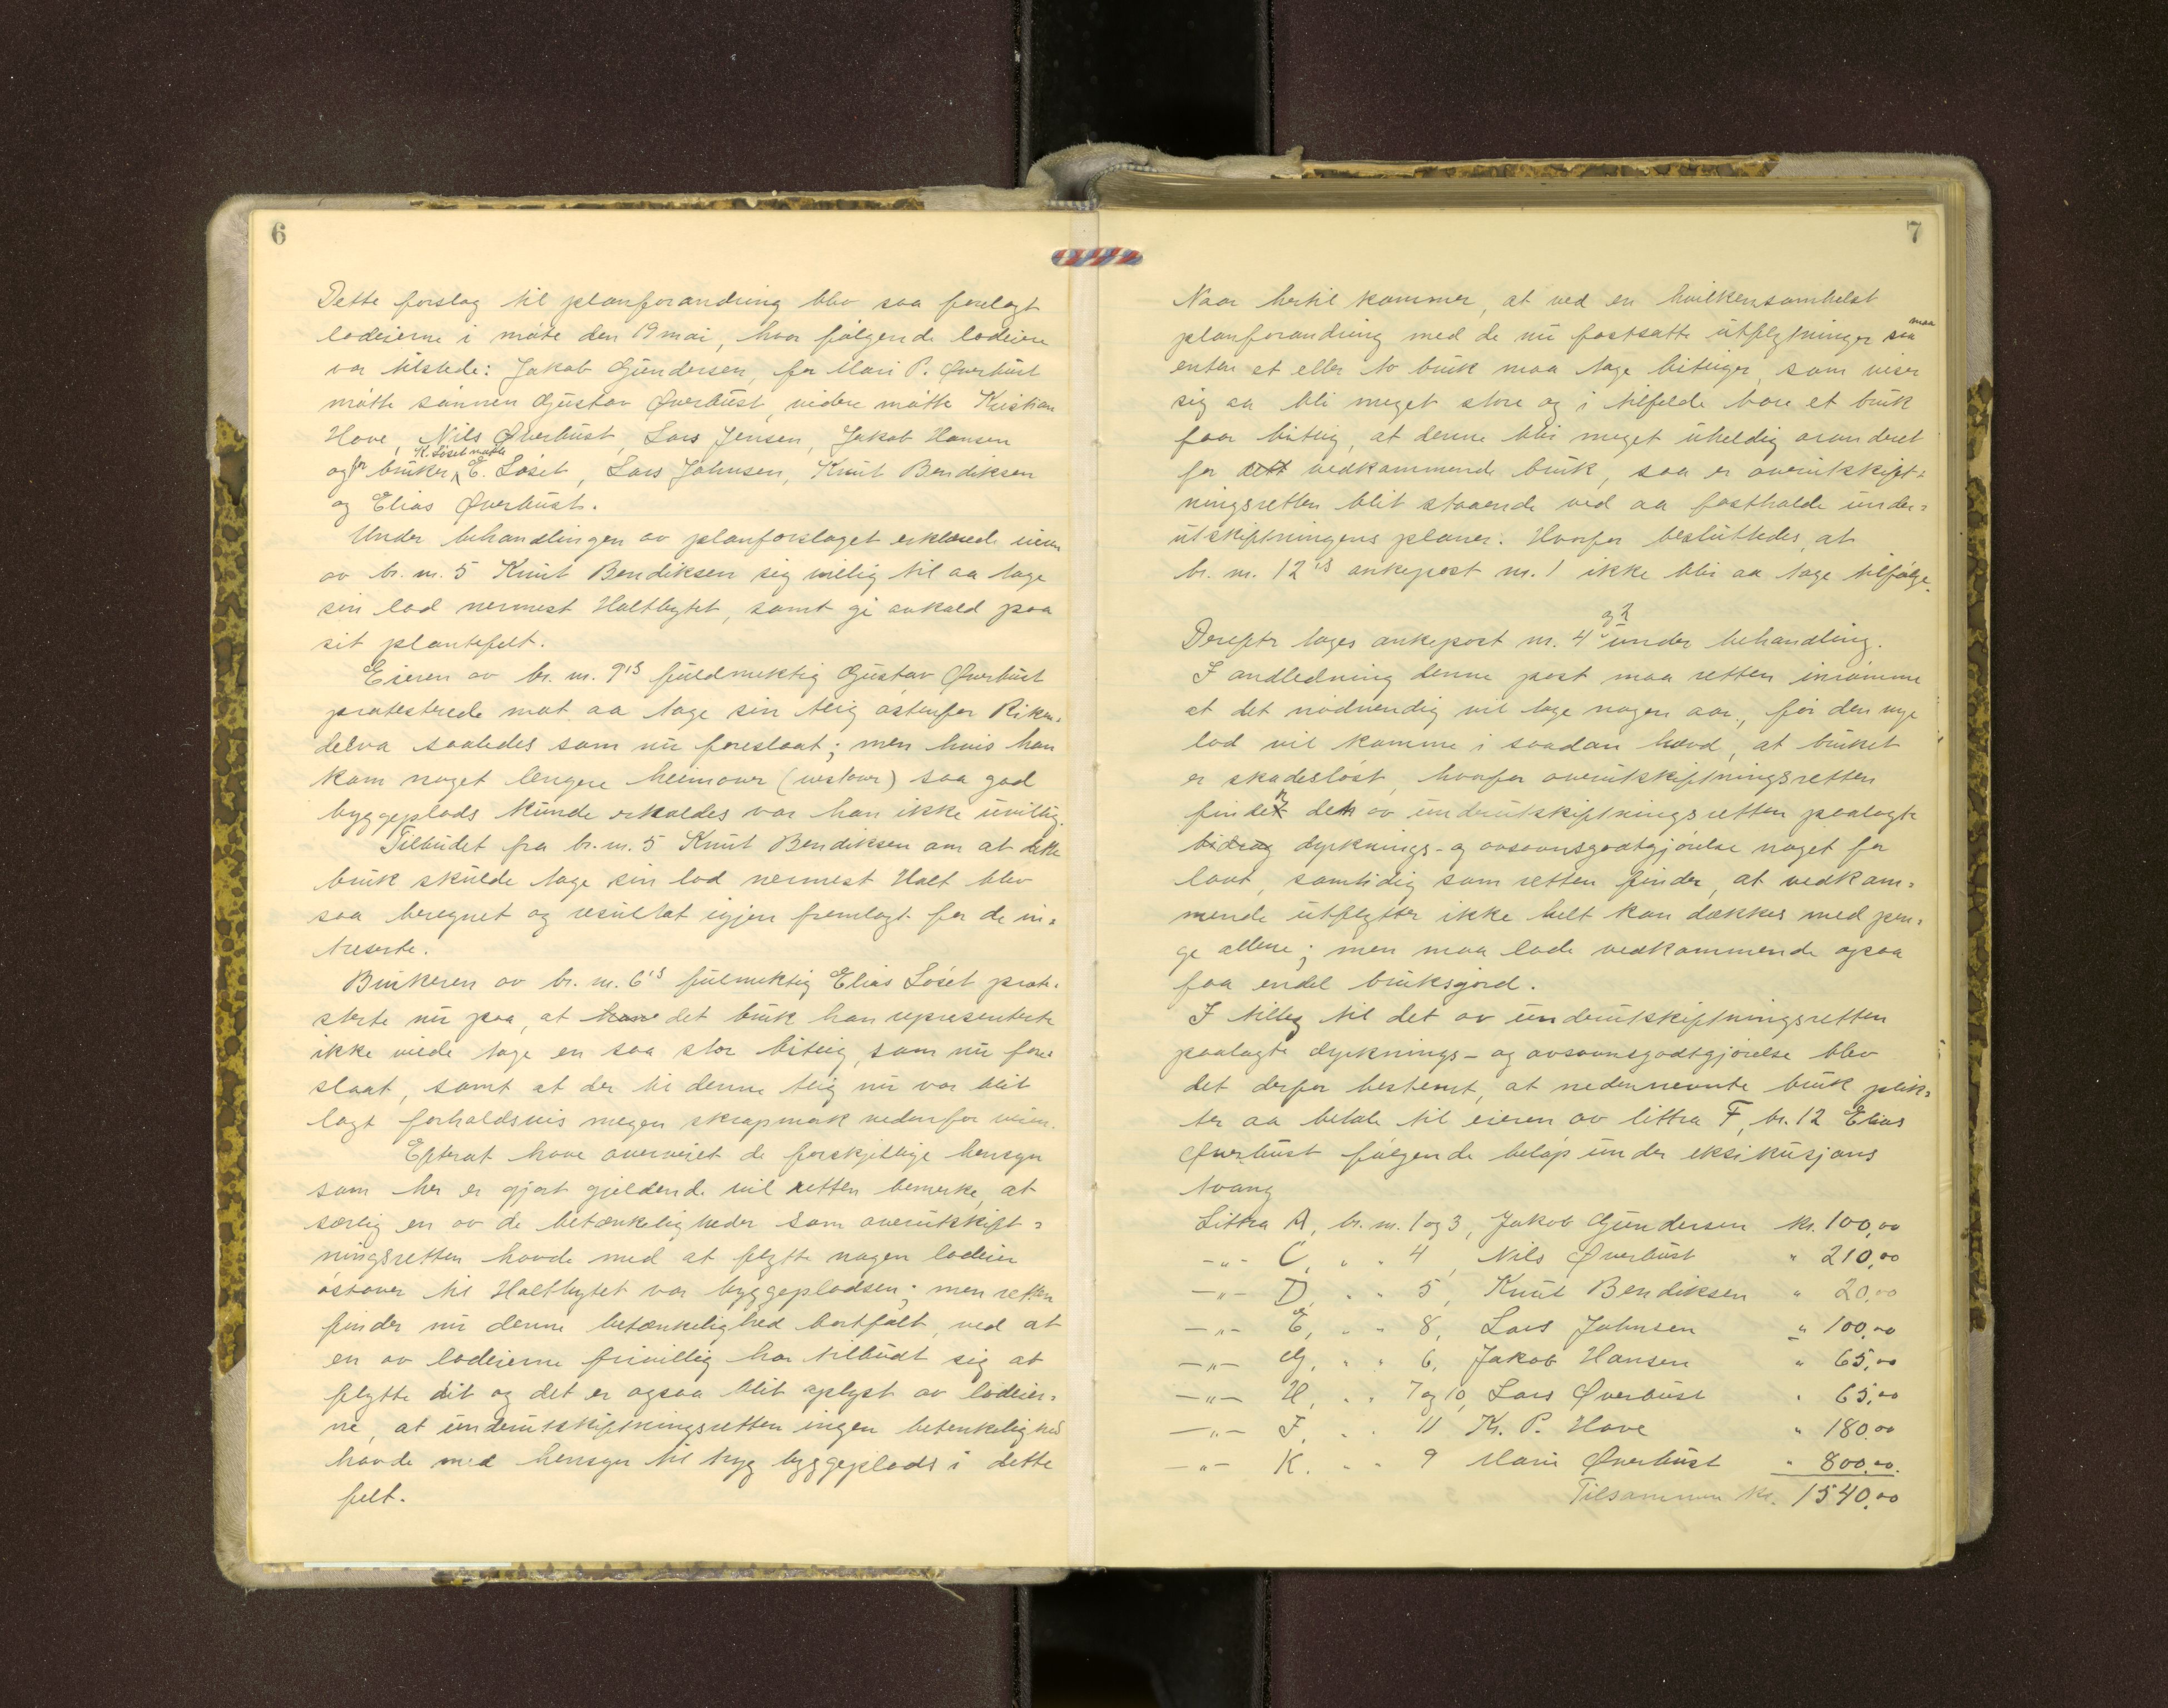 6
Dette forslag til planforandring blev saa forelagt
lodeierne i møte den 19 mai, hvor følgende lodeiere
var tilstede: Jakob Gundersen, for Mari P. Øverbust
møtte sønnen Gustav Øverbust, videre møtte Kristian
Hove, Nils Øverbust, Lars Jensen, Jakob Hansen
og for bruker K. Löset møtte E. Löset, Lars Johnsen, Knut Bendiksen
og Elias Øverbust.
Under behandlingen av planforslaget erklærede eieren
av br. nr. 5 Knut Bendiksen sig villig til aa tage
sin lod nermest Holtbytet, samt gi avkald paa
sit plantefelt.
Eieren av br. nr. 9's fuldmektig Gustav Øverbust
protesterede mot aa tage sin teig østenfor Riken-
delva saaledes som nu foreslaat; men hvis han
kom noget lengere heimover (vestover) saa god
byggeplads kunde erholdes var han ikke uvillig.
Tilbudet fra br. nr. 5 Knut Bendiksen om at dette
bruk skulde tage sin lod nermest Holt blev
saa beregnet og resultat igjen fremlagt for de in-
treserte.
Brukeren av br. nr. 6's fulmektig Elias Löset prote-
sterte nu paa, at have det bruk han representerte
ikke vilde tage en saa stor biteig, som nu fore-
slaat, samt at der til denne teig nu var blit
lagt forholdsvis megen skrapmark nedenfor veien.
Efterat have overveiet de forskjellige hensyn
som her er gjort gjeldende vil retten bemerke, at
særlig en av de betænkeligheder som overutskift-
ningsretten havde med at flytte nogen lodeier
østover til Holtbytet var byggepladsen; men retten
finder nu denne betænkelighed bortfalt, ved at
en av lodeierne frivillig har tilbudt sig at
flytte dit og det er ogsaa blit oplyst av lodeier-
ne, at underutskiftningsretten ingen betenkelighed
havde med hensyn til tryg byggeplads i dette
felt.
7
Naar hertil kommer, at ved en hvilkensomhelst
planforandring med de nu fastsatte utflytninger saa maa
enten et eller to bruk maa tage biteiger, som viser
sig aa bli meget store og i tilfelde bare et bruk
faar biteig, at denne blir meget uheldig arronderet
for dett vedkommende bruk, saa er overutskift-
ningsretten blit staaende ved aa fastholde under-
utskiftningens planer. Hvorfor besluttedes, at
br. nr. 12's ankepost nr. 1 ikke blir aa tage tilfølge.
Derefter tages ankepost nr. 4 og 2 under behandling.
I andledning denne post maa retten inrømme
at det nødvendig vil tage nogen aar, før den nye
lod vil komme i saadan hævd, at bruket
er skadesløst, hvorfor overutskiftningsretten
finder den av underutskiftningsretten paalagte
bidrag dyrknings- og avsavnsgodtgjørelse noget for
lavt, samtidig som retten finder, at vedkom-
mende utflytter ikke helt kan dækkes med pen-
ge allene; men maa lade vedkommende ogsaa
faa endel bruksjord.
I tilleg til det av underutskiftningsretten
paalagte dyrknings- og avsavnsgodtgjørelse blev
det derfor bestemt, at nedennevnte bruk plik-
ter aa betale til eieren av littra F, br. 12 Elias
Øverbust følgende beløp under eksikusjons
tvang
Littra A, br. nr. 1 og 3, Jakob Gundersen kr. 100,00
-„- C, „ „ 4, Nils Øverbust „ 210,00
-„- D, „ „ 5, Knut Bendiksen „ 20,00
-„- E, „ „ 8, Lars Johnsen „ 100,00
-„- G, „ „ 6, Jakob Hansen „ 65,00
-„- H, „ „ 7 og 10, Lars Øverbust „ 65,00
-„- J, „ „ 11 Kr. P. Hove „ 180,00
-„- K. „ „ 9 Marie Øverbust „ 800,00.
Tilsammen kr. 1540,00